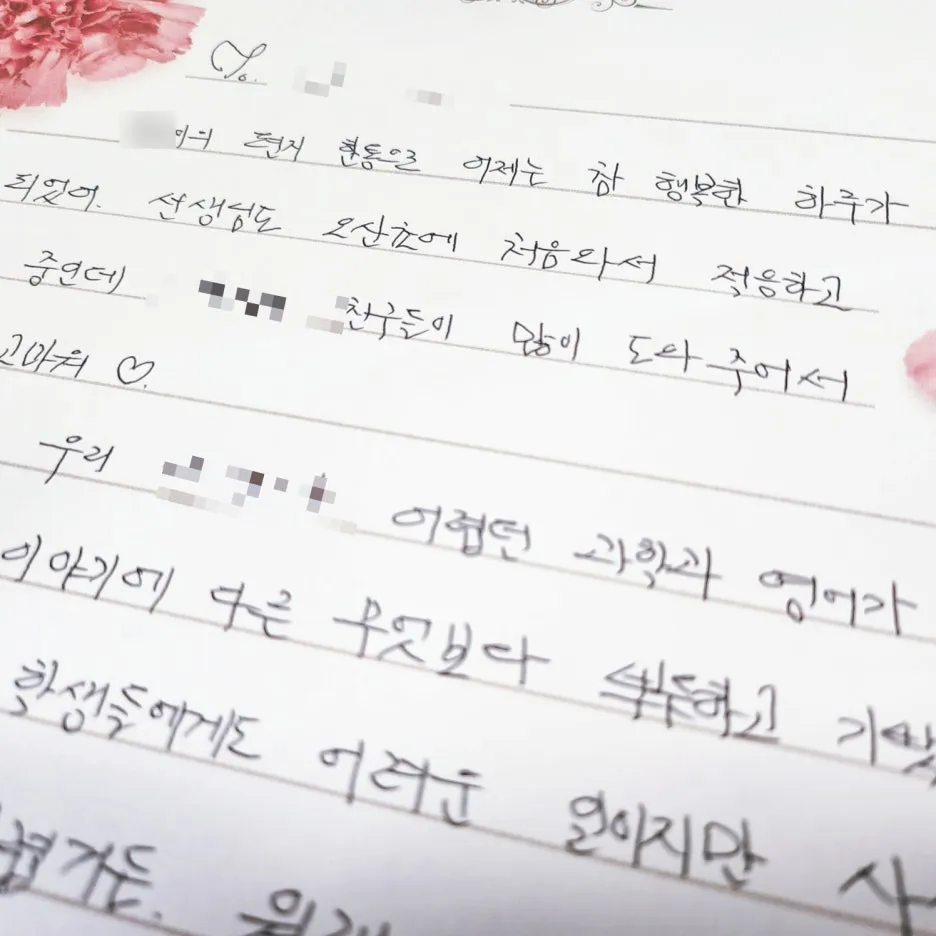 To.
이의 편지 한통으로 어제는 참 행복한 하루가
되었어. 선생님도 오산초에 처음와서 적응하고
중인데 친구들이 많이 도와 주어서
고마워 ♡.
우리 어렵던 과학과 영어가
이야기에 다른 무엇보다 뿌듯하고 기뻤
학생들에게도 어려운 일이지만
거든.